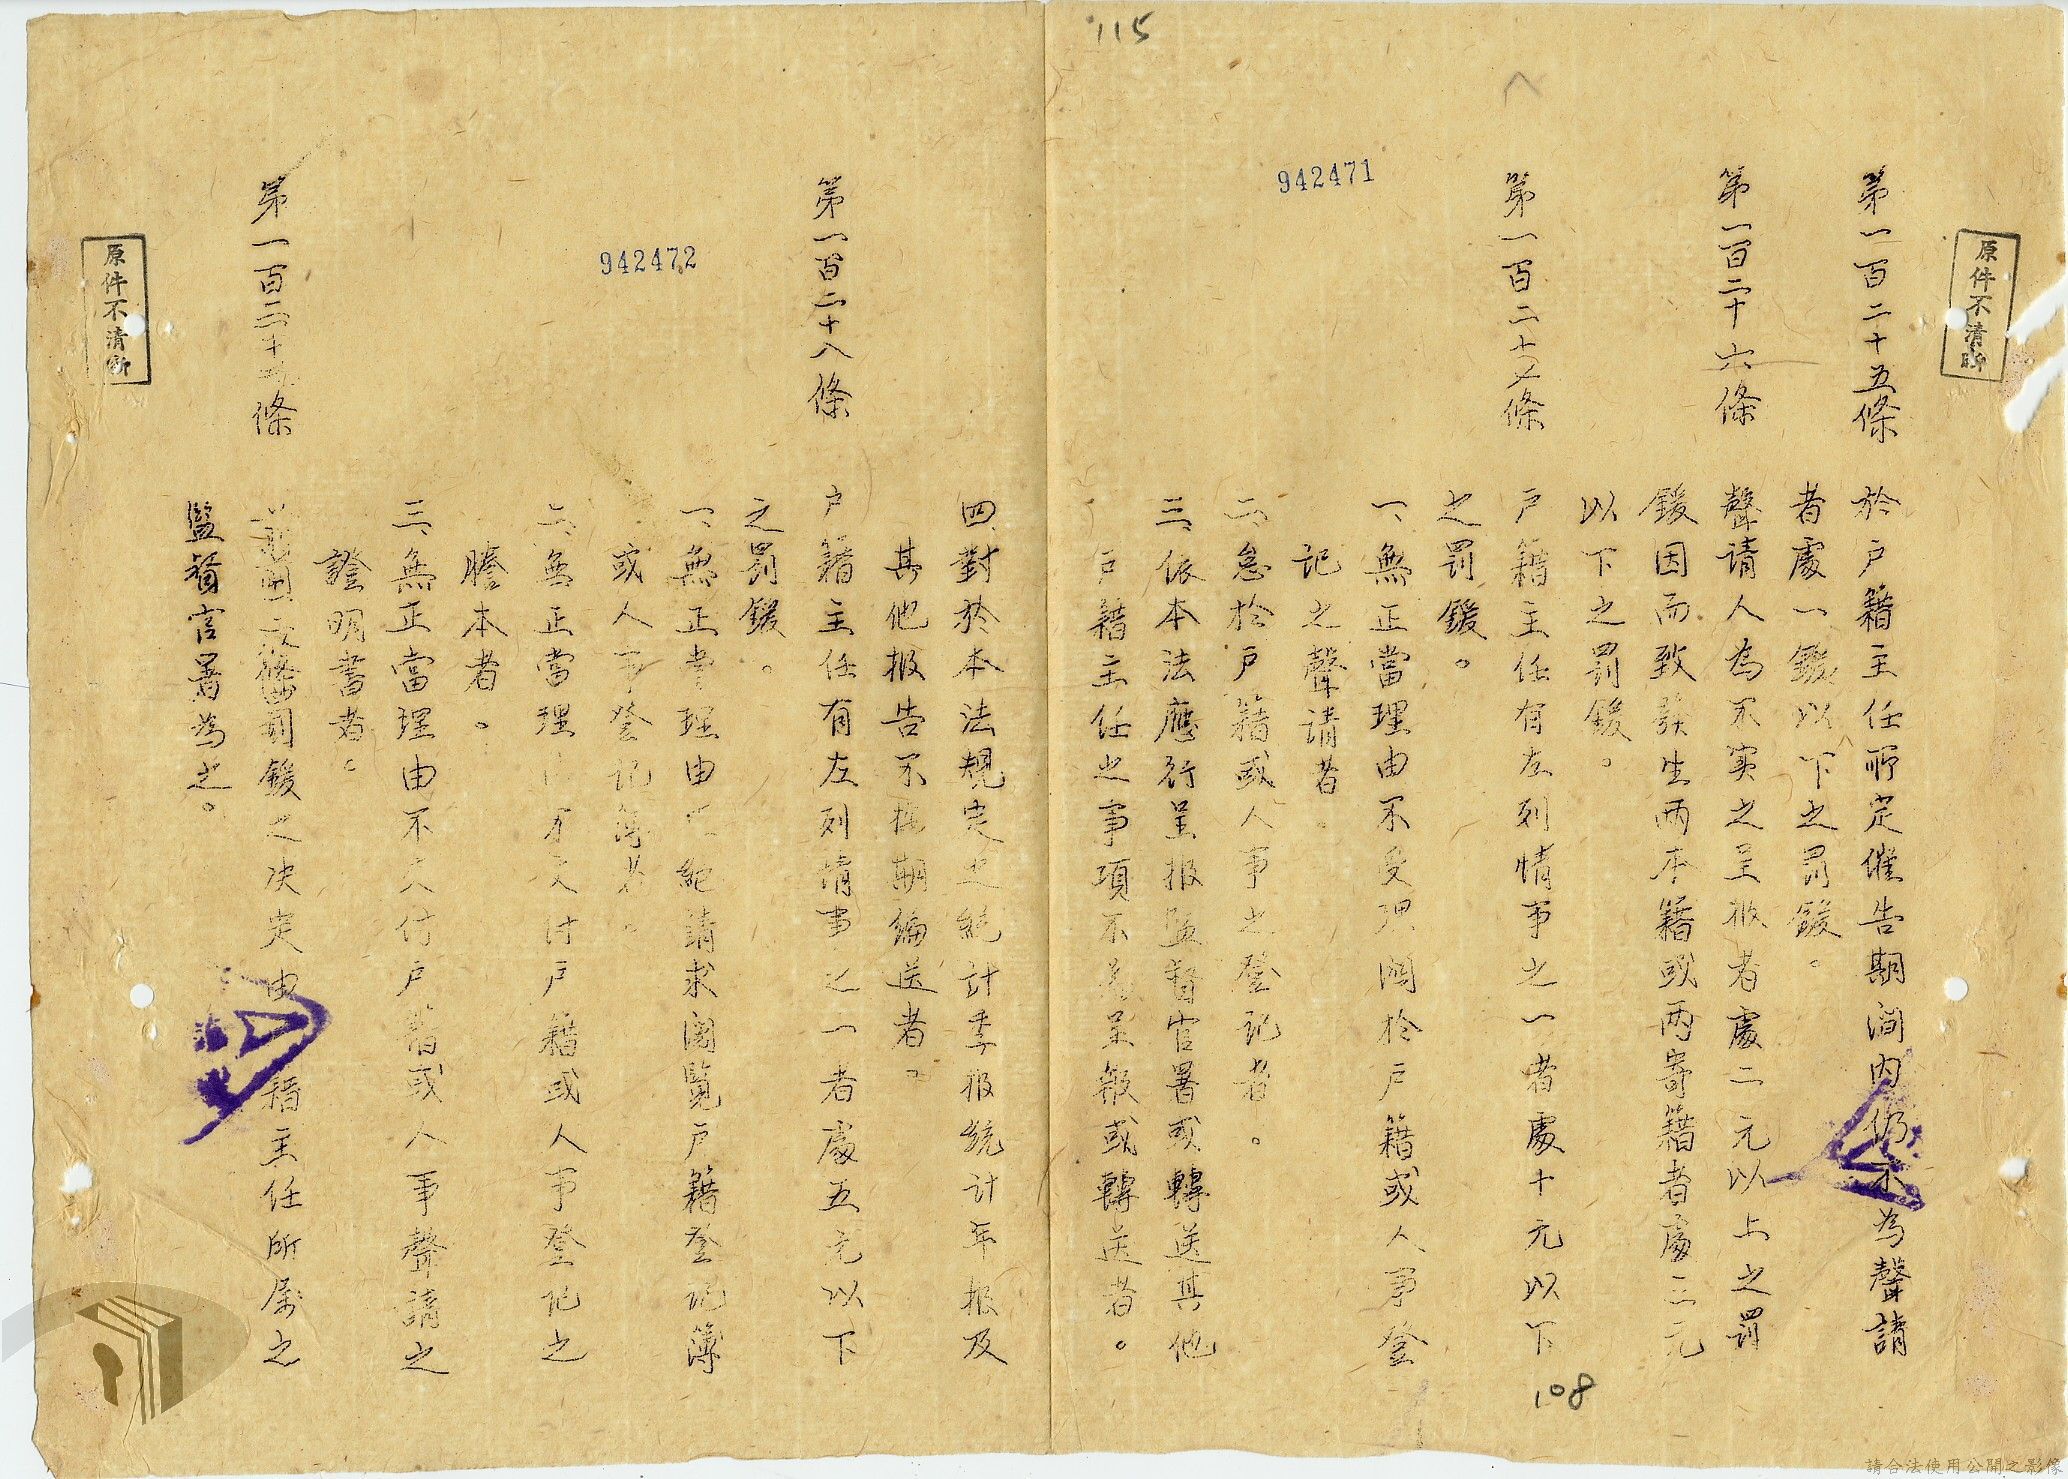 115
942471
原件不清晰
第一百二十五條 於戶籍主任所定催告期間內仍不為聲請
者處一鍰以下之罰鍰。
第一百二十六條 聲請人為不实之呈报者處二元以上之罰
鍰因而致發生両本籍或両寄籍者處二元
以下之罰鍰。
第一百二十七條 戶籍主任有左列情事之一者處十元以下
之罰鍰。
一、無正當理由不受理関於戶籍或人事登
記之聲请者
二、怠於戶籍或人事之登記者。
三、依本法應行呈报监督官署或轉送其他
戶籍主任之事項不為呈報或轉送者。
108
942472
四、對於本法規定之統計季报統計年报及
其他报告不按期编送者。
第一百二十八條 戶籍主任有左列情事之一者處五元以下
之罰鍰。
一、無正當理由 請求閱覽戶籍登记簿
或人事登记簿者。
二、無正當理由不交付戶籍或人事登记之
謄本者。
三、無正當理由不交付戶籍或人事聲請之
證明書者。
第一百二十九條 罰鍰之决定由 籍主任所属之
監督官署為之。
原件不清晰
請合法使用公開之影像